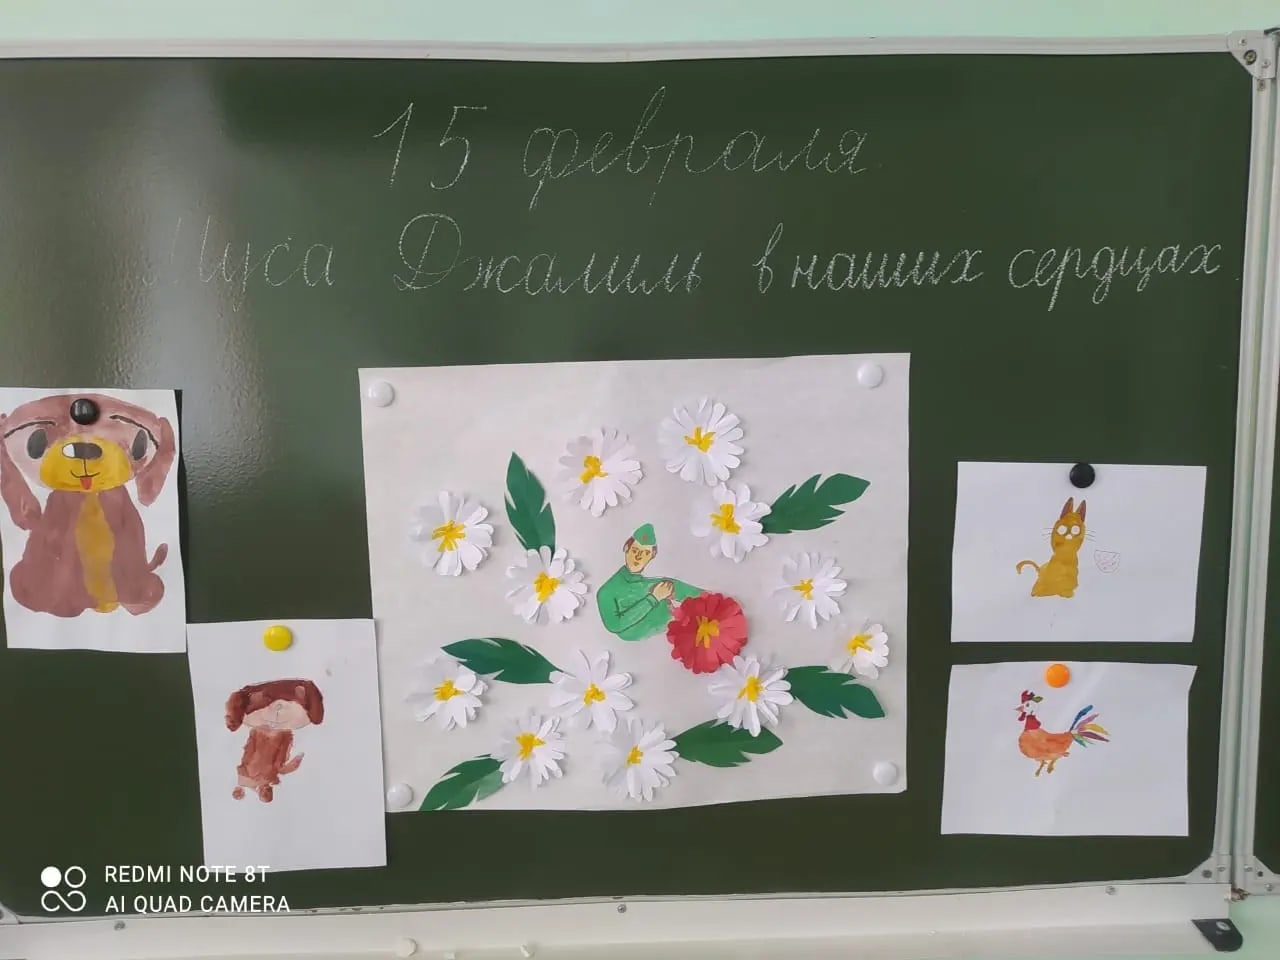 15 февраля
Муса Джалиль в наших сердцах
REDMI NOTE 8T
AI QUAD CAMERA